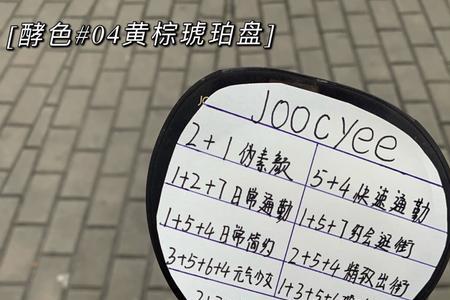 [酵色#04黄棕琥珀盘]
JOOCYEE
2+1 伪素颜
5+4 快速通勤
1+2+7 日常通勤
1+5+7 约会逛街
1+5+4 日常简约
2+5+4 精致出街
3+5+6+4 元气少女